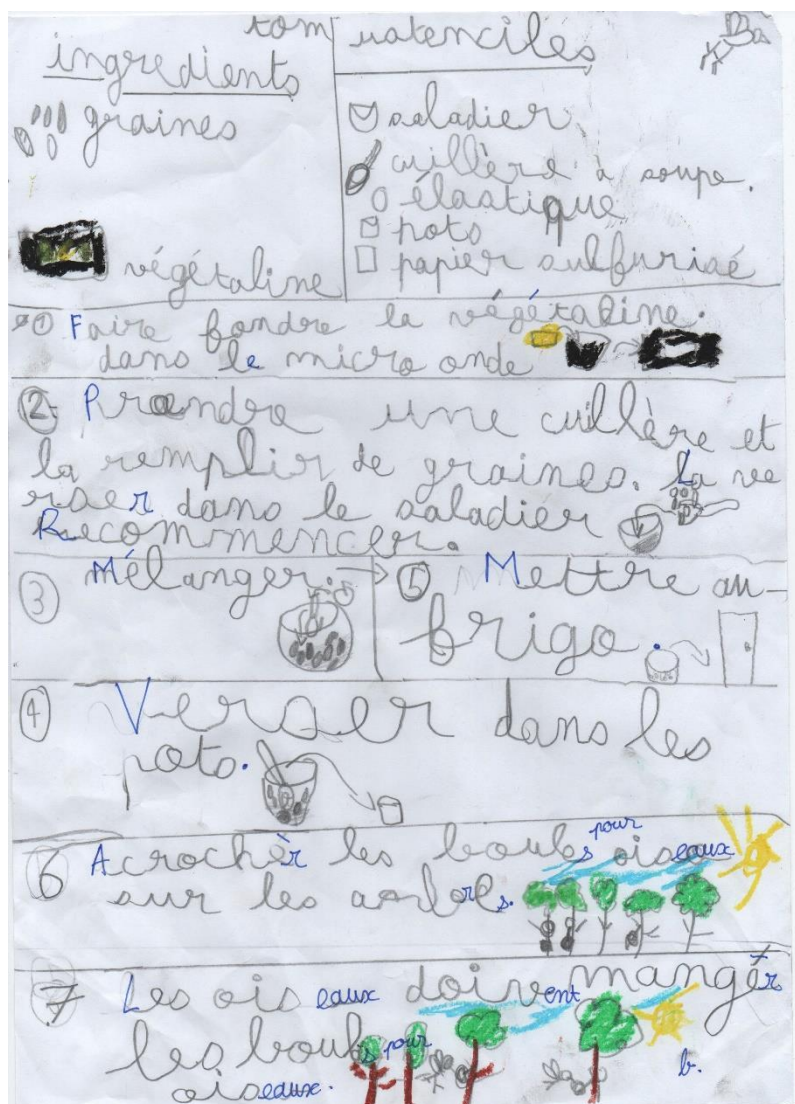 tom
ingredients
graines
végétaline
ustenciles
saladier
cuillère à soupe.
élastique
pots
papier sulfurisé
① Faire fondre la végétaline.
dans le micro onde
② Prendre une cuillère et
la remplir de graines. La ve
rser dans le saladier
Recommencer.
③ Mélanger.
⑤ Mettre au
frigo.
④ Verser dans les
pots.
6 Acrocher les boules pour oiseaux
sur les arbres.
7 Les oiseaux doivent manger
les boules pour
oiseaux.
b.